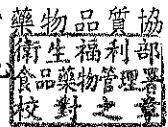 藥物品質協
衛生福利部
食品藥物管理署
校對之章